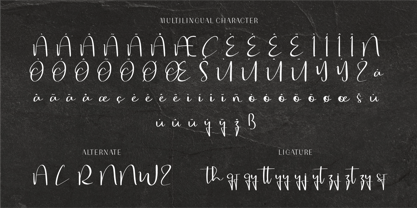 MULTILINGUAL CHARACTER
À Á Â Ã Ä Å Æ Ç È É Ê Ë Ì Í Î Ï Ñ
Ò Ó Ô Õ Ö Ø Œ Š Ù Ú Û Ü Ý Ÿ Ž à
á â ã ä å æ ç è é ê ë ì í î ï ñ ò ó ô õ ö ø œ š ù
ú û ü ý ÿ ž ß
ALTERNATE LIGATURE
A C R N N W Z th